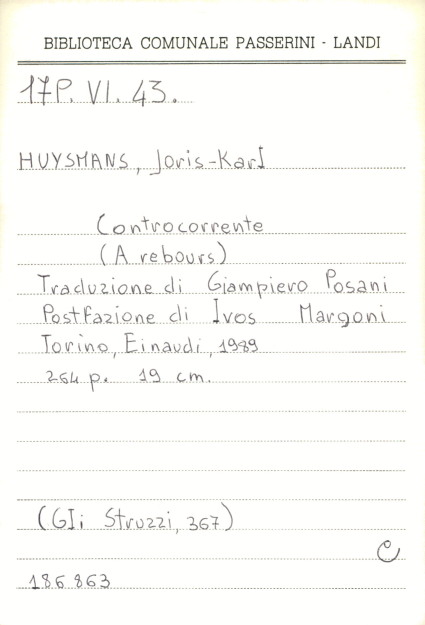 BIBLIOTECA COMUNALE PASSERINI - LANDI
17P. VI. 43.
HUYSMANS, Joris-Karl
Controcorrente
(A rebours)
Traduzione di Giampiero Posani
Postfazione di Ivos Margoni
Torino, Einaudi, 1989
264 p. 19 cm.
(Gli Struzzi, 367)
C
186863